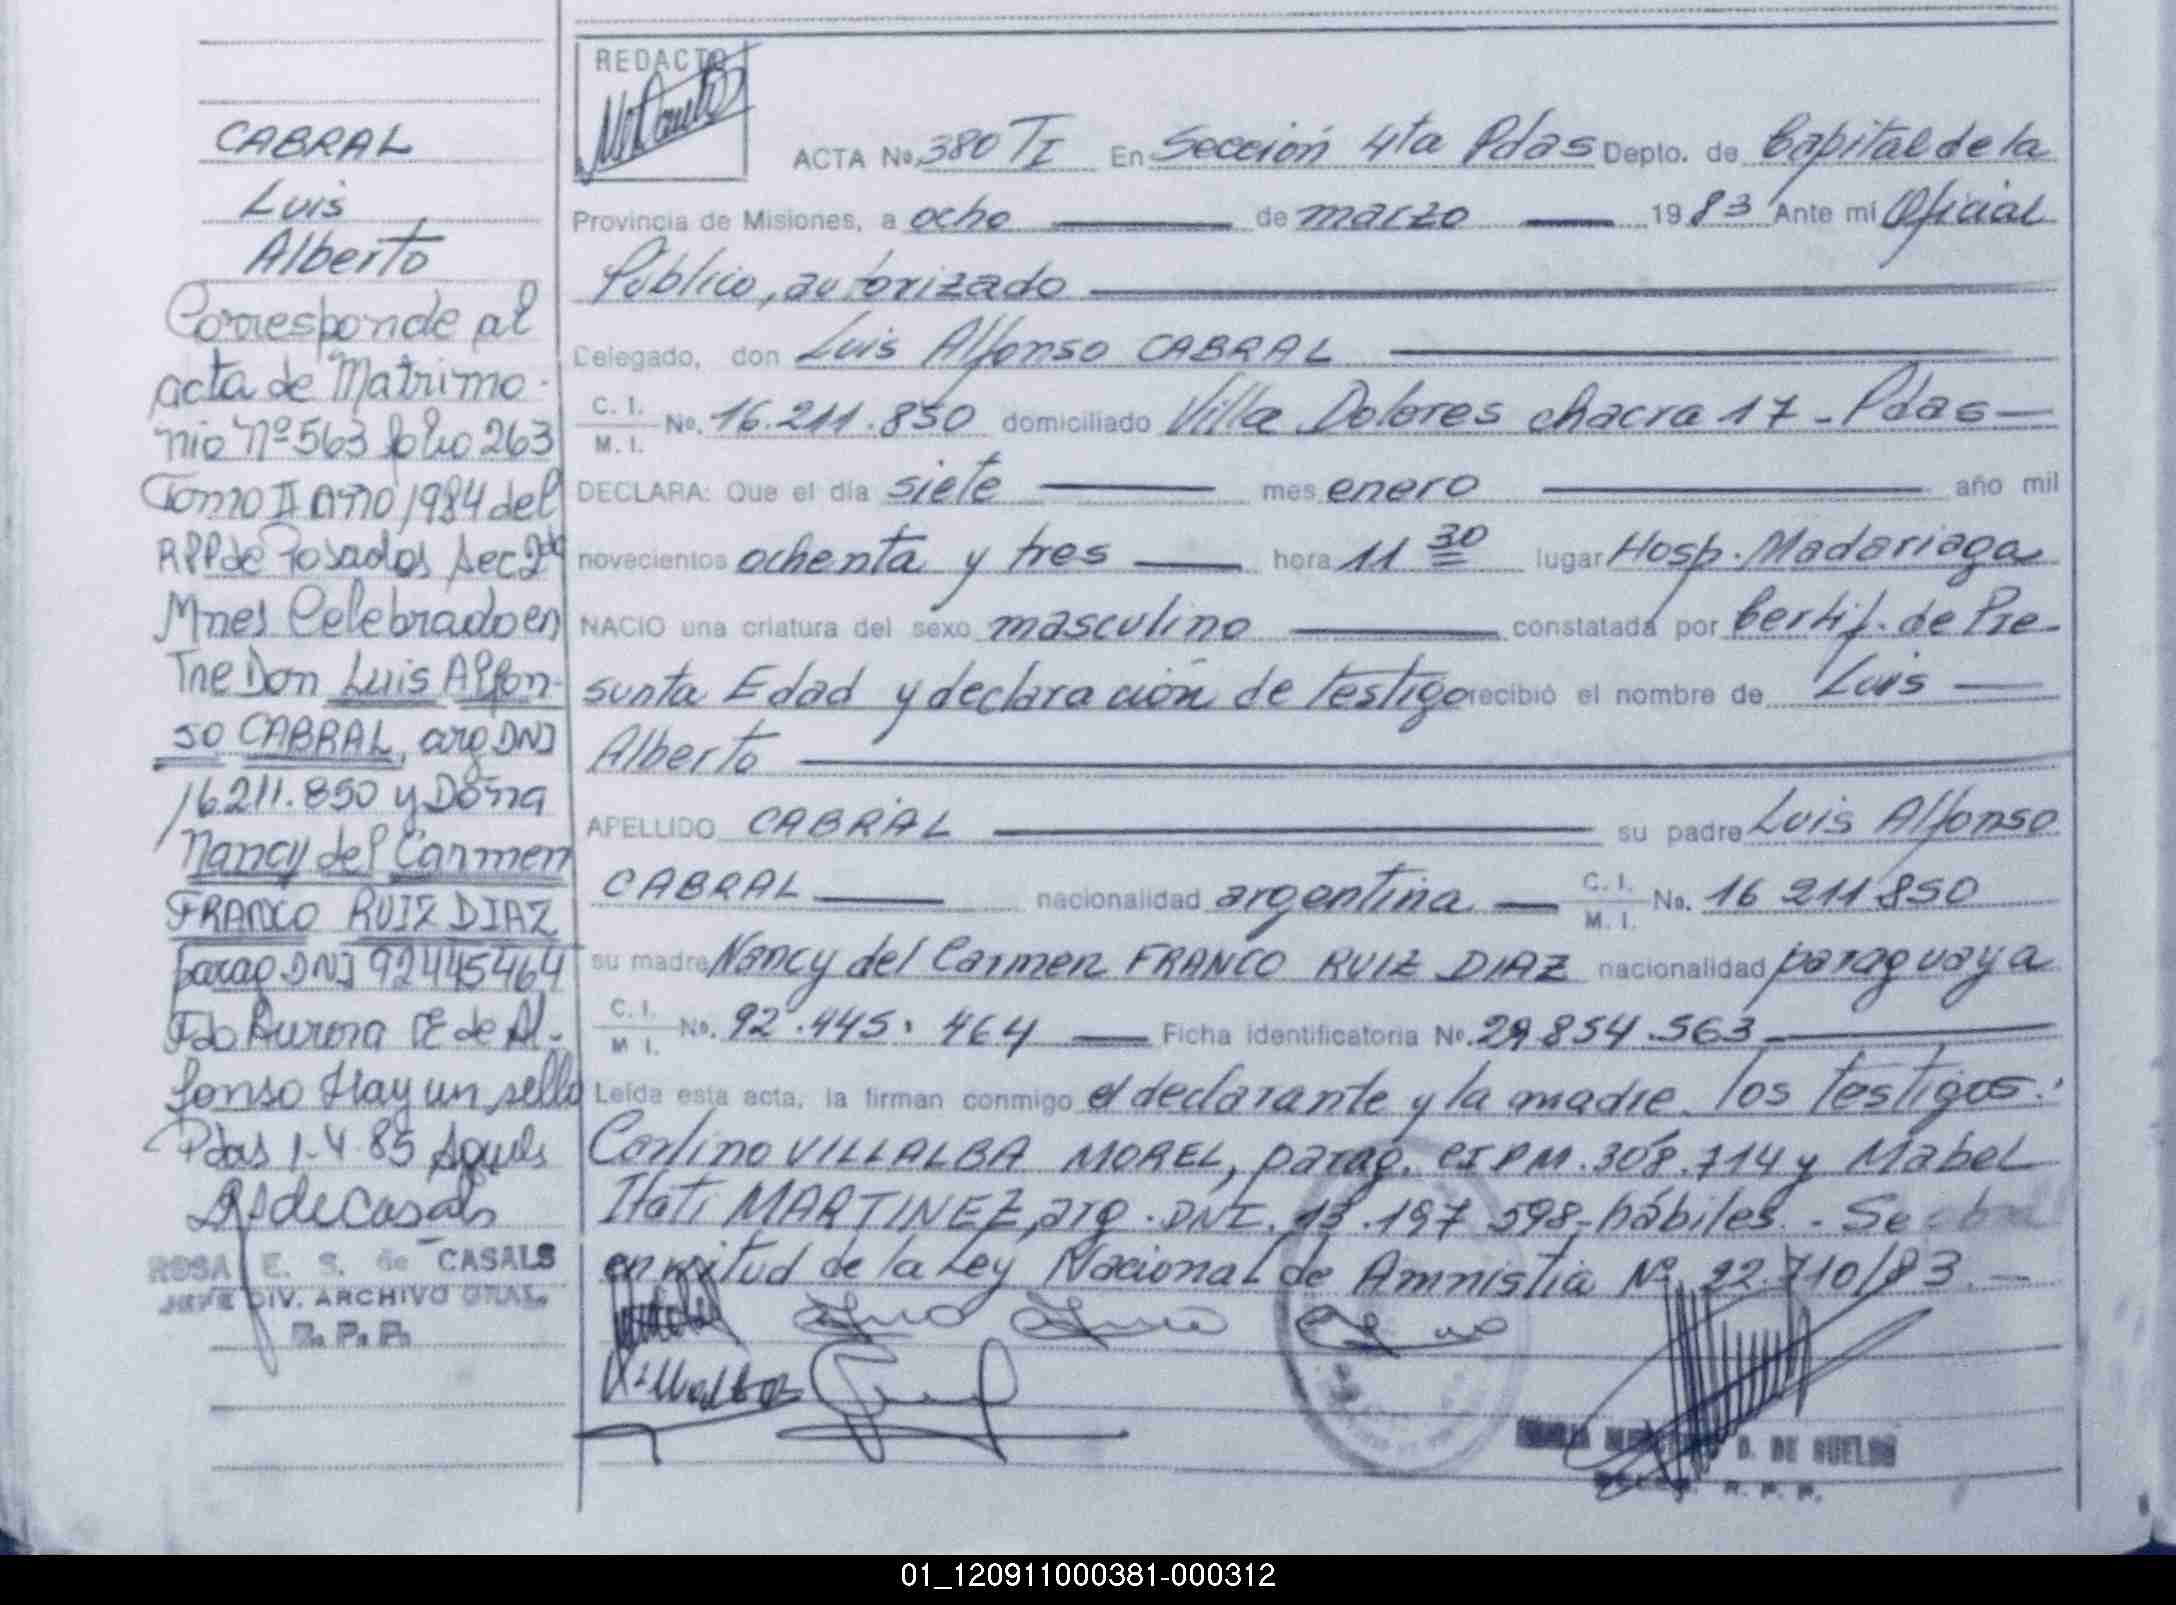 CABRAL
Luis
Alberto
Corresponde al
acta de Matrimo-
nio Nº 563 folio 263
Tomo II año 1984 del
RPP de Posadas Sec 2da
Mnes Celebrado en
Tre Don Luis Alfon-
so CABRAL, arg DNI
16.211.850 y Doña
Nancy del Carmen
FRANCO RUIZ DIAZ
parag DNI 92445464
Fdo Aurora E de Al-
fonso Hay un sello
Pdas 1-4-85
de Casals
ROSA E. S. de CASALS
JEFE DIV. ARCHIVO GRAL.
R. P. P.
REDACTO
ACTA No. 380 TI En Sección 4ta Pdas Depto. de Capital de la
Provincia de Misiones, a ocho de marzo 1983 Ante mí Oficial
Público, autorizado
Delegado, don Luis Alfonso CABRAL
C. I.
M. I. No. 16.211.850 domiciliado Villa Dolores chacra 17 - Pdas
DECLARA: Que el día siete mes enero año mil
novecientos ochenta y tres hora 11 30 lugar Hosp. Madariaga
NACIO una criatura del sexo masculino constatada por Certif. de Pre-
sunta Edad y declaración de testigo recibió el nombre de Luis
Alberto
APELLIDO CABRAL su padre Luis Alfonso
CABRAL nacionalidad argentina C. I.
M. I. No. 16 211 850
su madre Nancy del Carmen FRANCO RUIZ DIAZ nacionalidad paraguaya
C. I.
M. I. No. 92.445.464 Ficha identificatoria No. 29.854.563
Leída esta acta, la firman conmigo el declarante y la madre. los testigos:
Carlino VILLALBA MOREL, parag. CI PM. 308.714 y Mabel
Itatí MARTINEZ, arg. DNI. 13.197 598, hábiles. - Se
en mitud de la Ley Nacional de Amnistia Nº 22.710/83. -
D. DE BUELOS
R. P. P.
01_120911000381-000312